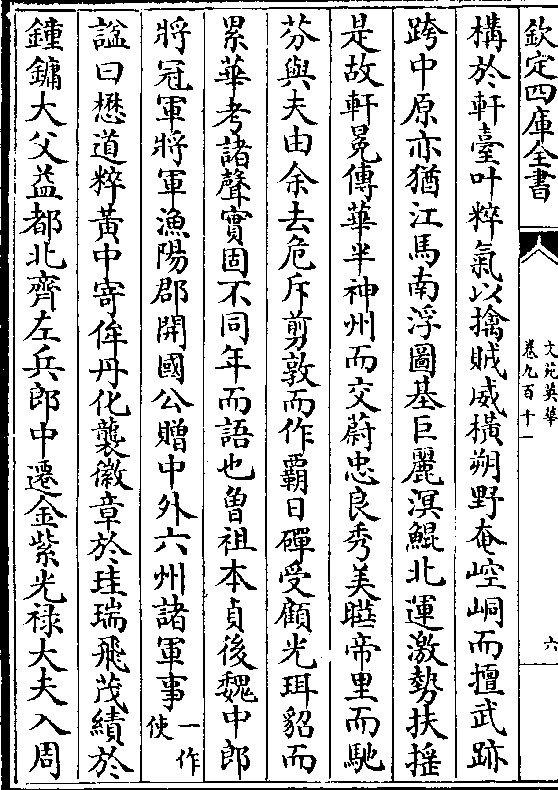 欽定四庫全書
文苑英華
卷九百十一
六
構於軒臺叶粹氣以擒賊威横朔野奄崆峒而擅武跡
跨中原亦猶江馬南浮圖基巨麗溟鯤北運激勢扶摇
是故軒冕傳華半神州而交蔚忠良秀美䀹帝里而馳
芬與夫由余去危斥剪敦而作覇日磾受顧光珥貂而
累華考諸聲實固不同年而語也曽祖本貞後魏中郎
將冠軍將軍漁陽郡開國公贈中外六州諸軍事一作使
諡曰懋道粹黄中寄侔丹化襲徽章於珪瑞飛茂績於
鍾鏞大父益都北齊左兵郎中遷金紫光禄大夫入周